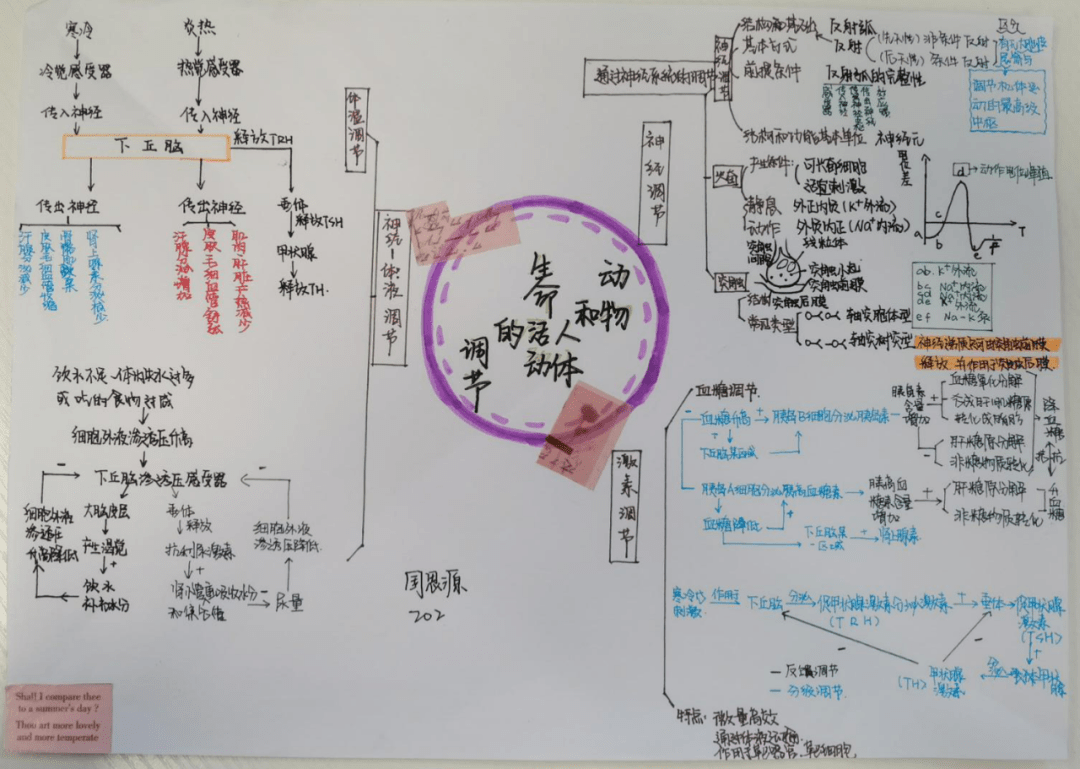 寒冷
炎热
冷觉感受器
热觉感受器
传入神经
传入神经
下丘脑
释放TRH
传出神经
传出神经
垂体
释放TSH
甲状腺
释放TH.
汗腺分泌减少
皮肤毛细血管收缩
汗腺分泌增加
皮肤毛细血管舒张
体温调节
神经-体液调节
饮水不足、体内失水过多
或吃的食物过咸
细胞外液渗透压升高
下丘脑渗透压感受器
细胞外液渗透压
大脑皮层
垂体
释放
细胞外液渗透压降低.
产生渴觉
抗利尿激素
+
+
饮水
补充水分
尿量
动物和人体生命活动的调节
周恩源
202
Shall I compare thee
to a summer's day ?
Thou art more lovely
and more temperate
通过神经系统的调节
神经调节
神经调节
反射弧
基本方式
反射
非条件反射
条件反射
前提条件
反射弧的完整性
调节机体运动的最高级中枢
结构和功能基本单位 神经元
兴奋
产生条件:
可兴奋细胞
适宜刺激
静息
外正内负(K⁺外流)
动作
外负内正(Na⁺内流)
线粒体
突触
突触间隙
突触小泡
突触前膜
结构
突触后膜
常见类型
轴突胞体型
轴突树突型
电位差
d
动作电位峰值
a
b
c
e
f
T
ab. K⁺外流
bc Na⁺内流
cd Na⁺内流
de K⁺外流
ef Na-K泵
释放 并作用于突触后膜.
激素调节
血糖调节.
血糖升高
+
胰岛B细胞分泌胰岛素
胰岛素含量增加
+
血糖氧化分解
合成肝糖原肌糖原
肝糖原分解
非糖物质转化
胰岛A细胞分泌胰高血糖素
胰高血糖素含量增加
+
肝糖原分解
非糖物质转化
升血糖
血糖降低
+
肾上腺素
寒冷等刺激
作用于
下丘脑
分泌
促甲状腺激素分泌激素
(TRH)
+
垂体
促甲状腺激素
(TSH)
+
甲状腺激素
(TH)
- 反馈调节
- 分级调节
特点: 微量高效
通过体液运输
作用于靶器官、靶细胞